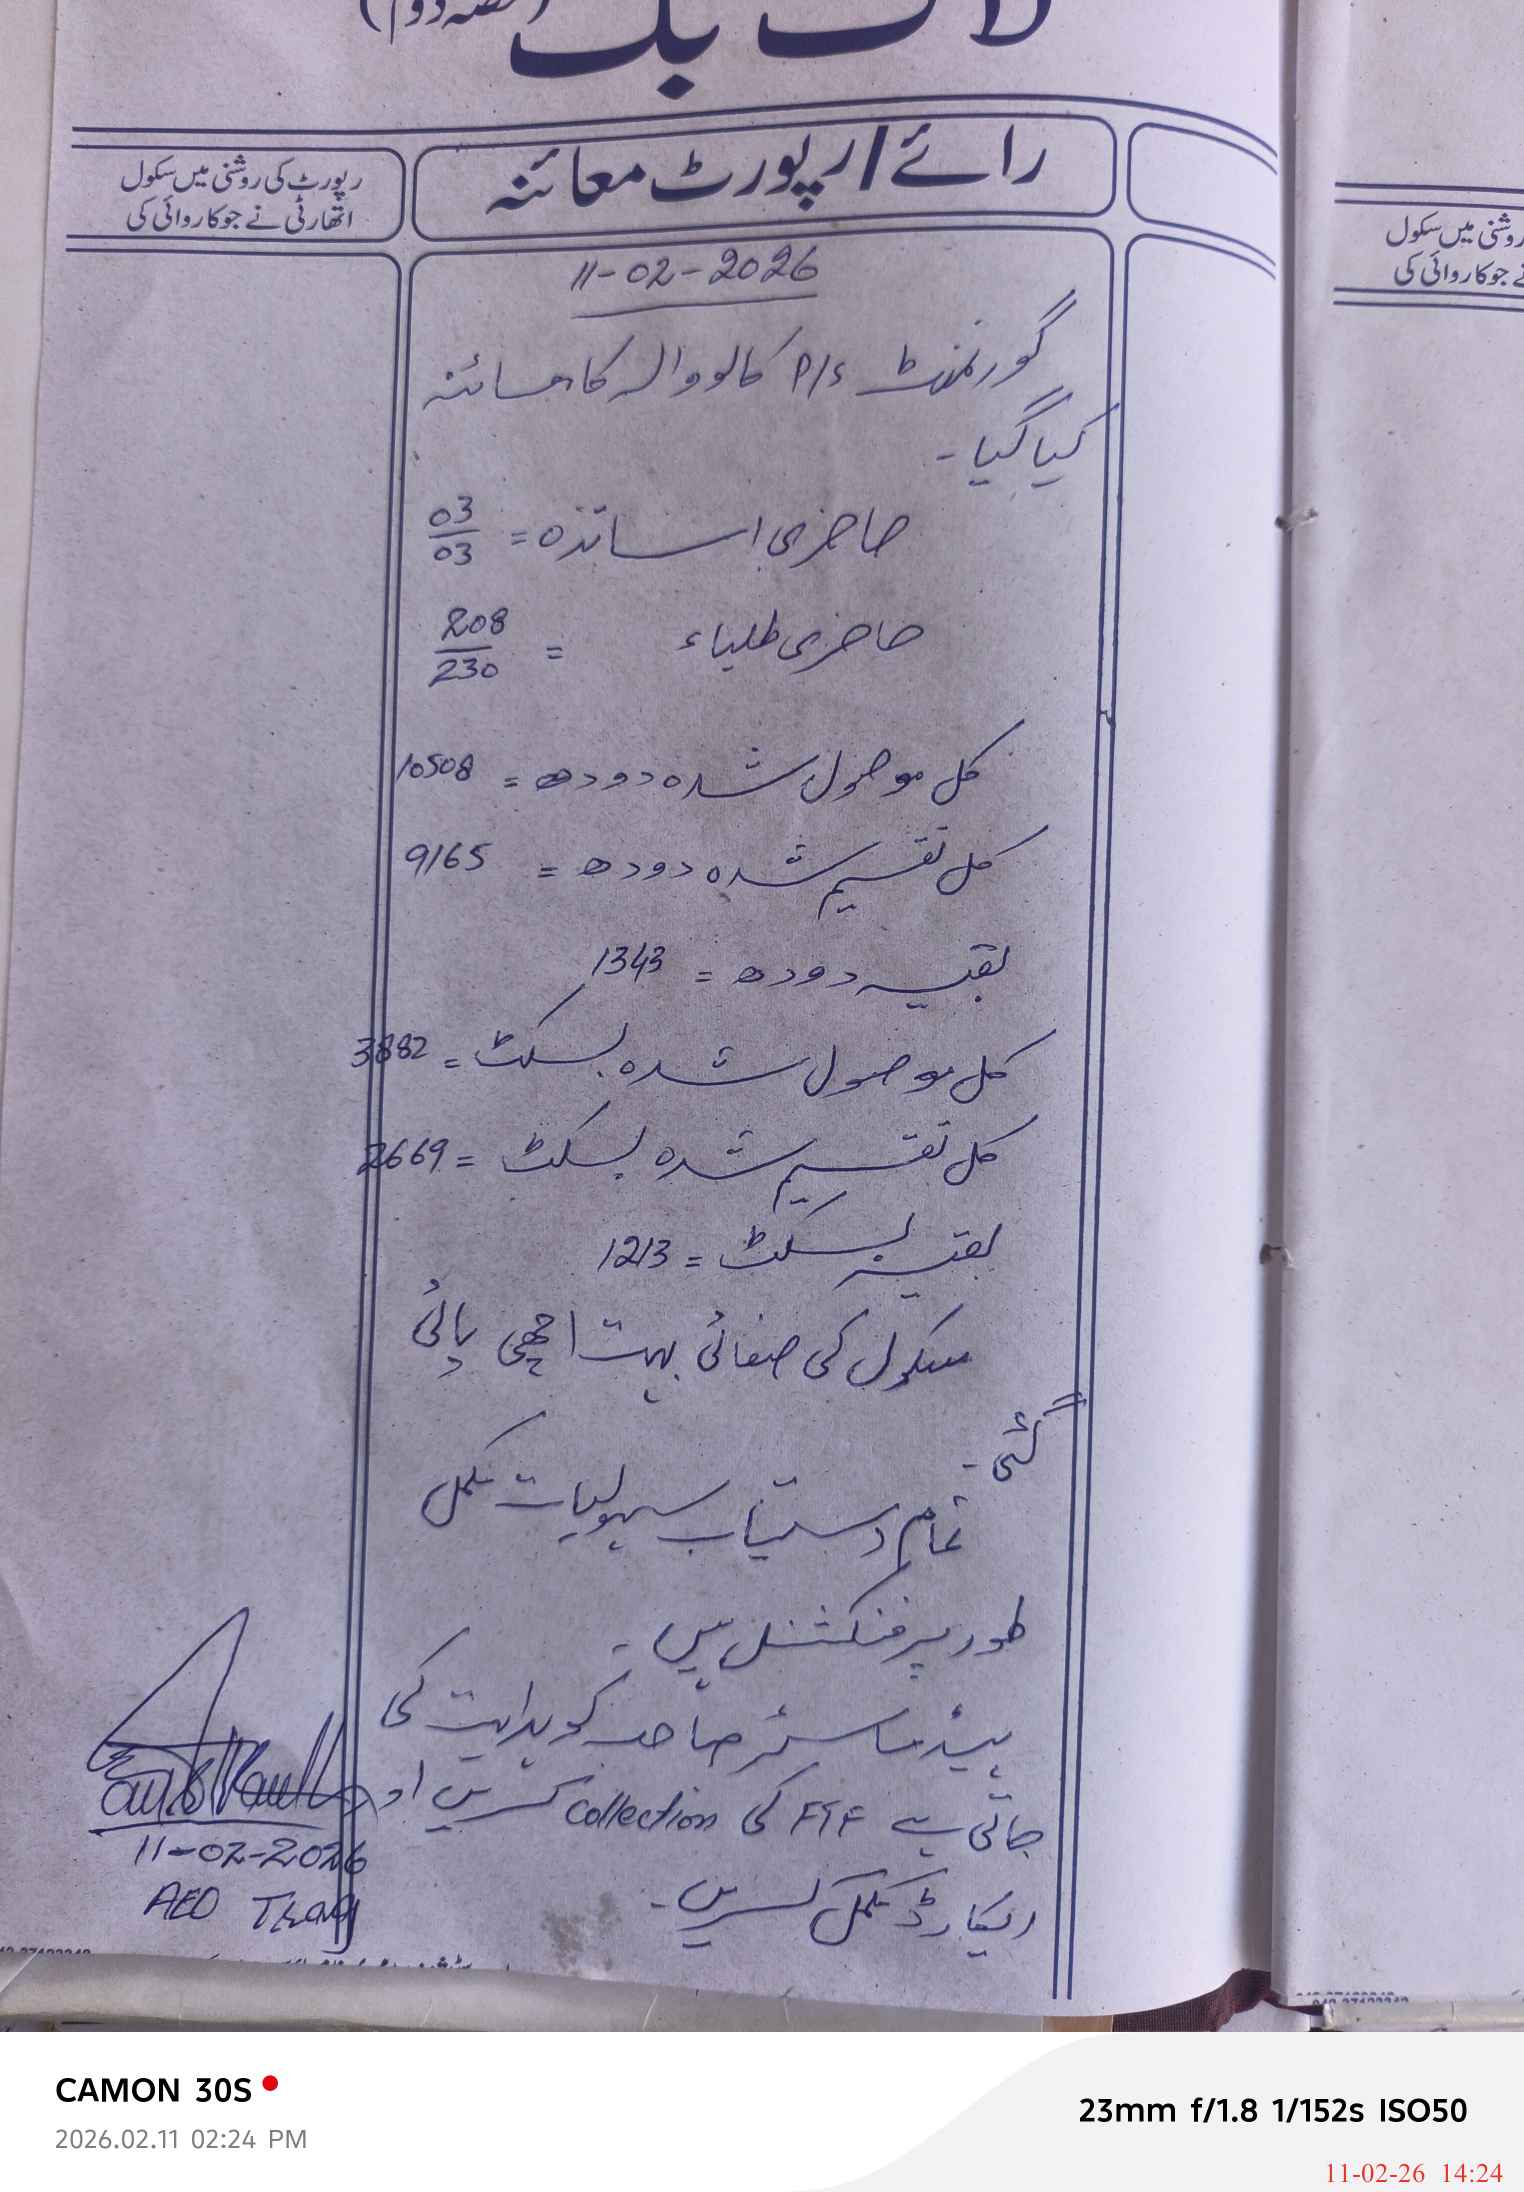 لاگ بک (حصہ دوم)
رائے / رپورٹ معائنہ
رپورٹ کی روشنی میں سکول
اتھارٹی نے جو کاروائی کی
روشنی میں سکول
نے جو کاروائی کی
11-02-2026
گورنمنٹ P/S کالووالہ کا معائنہ
کیا گیا۔
حاضری اساتذہ = 03/03
حاضری طلباء = 208/230
کل موصول شدہ دودھ = 10508
کل تقسیم شدہ دودھ = 9165
بقیہ دودھ = 1343
کل موصول شدہ بسکٹ = 3882
کل تقسیم شدہ بسکٹ = 2669
بقیہ بسکٹ = 1213
سکول کی صفائی بہت اچھی پائی
گئی۔
تمام دستیاب سہولیات مکمل
طور پر فنکشنل ہیں۔
ہیڈ ماسٹر صاحب کو ہدایت کی
جاتی ہے FTF کی collection کریں اور
ریکارڈ مکمل کریں۔
11-02-2026
AEO
CAMON 30S
2026.02.11 02:24 PM
23mm f/1.8 1/152s ISO50
11-02-26 14:24